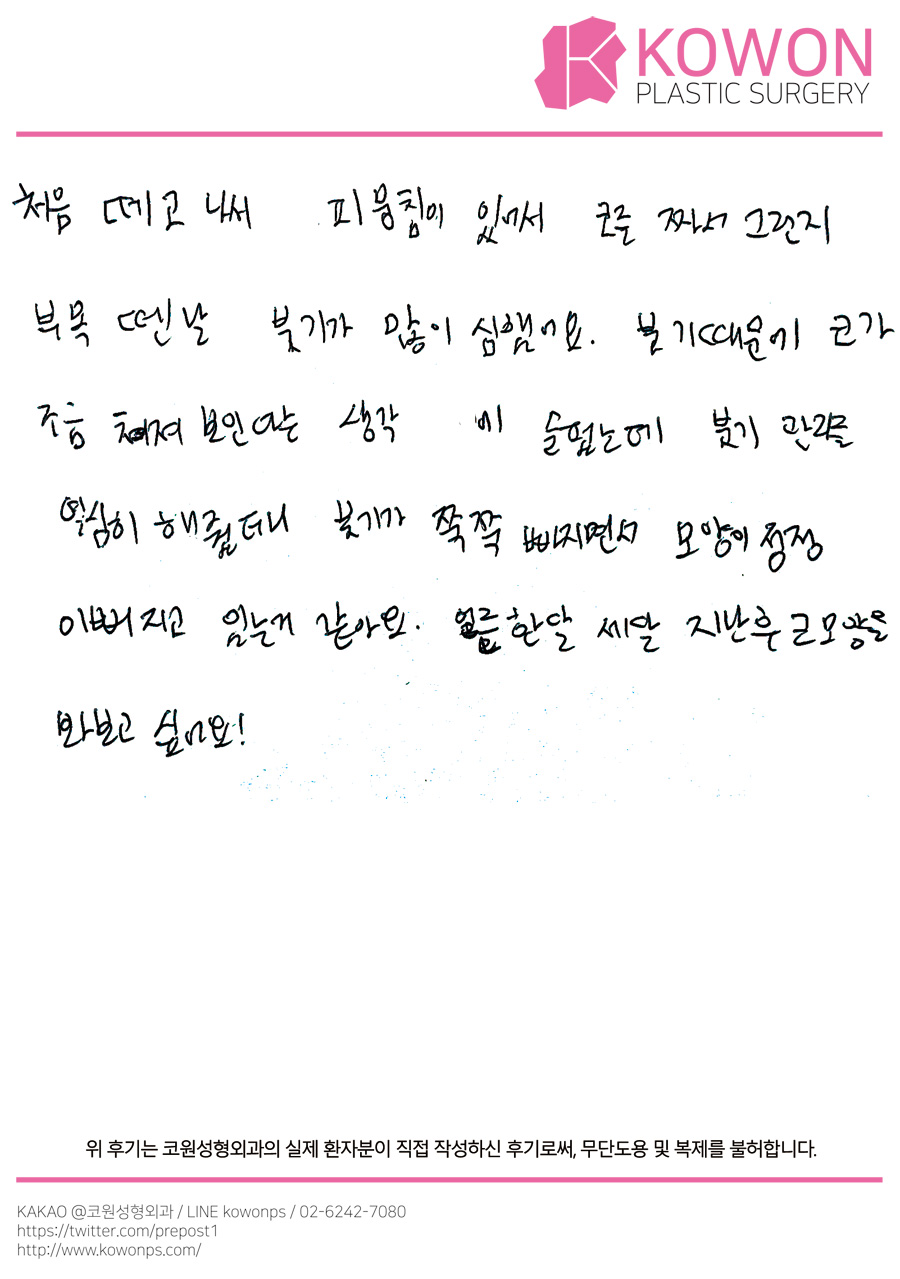 KOWON
PLASTIC SURGERY
처음 떼고 나서 피뭉침이 있어서 코를 짜서 그런지
부목 뗀날 붓기가 많이 심했어요. 붓기때문에 코가
조금 쳐져 보인다는 생각 에 슬펐는데 붓기 관리를
열심히 해줬더니 붓기가 쭉쭉 빠지면서 모양이 점점
이뻐지고 있는거 같아요. 얼른 한달 세달 지난후 코모양을
봐보고 싶어요!
위 후기는 코원성형외과의 실제 환자분이 직접 작성하신 후기로써, 무단도용 및 복제를 불허합니다.
KAKAO @코원성형외과 / LINE kowonps / 02-6242-7080
https://twitter.com/prepost1
http://www.kowonps.com/